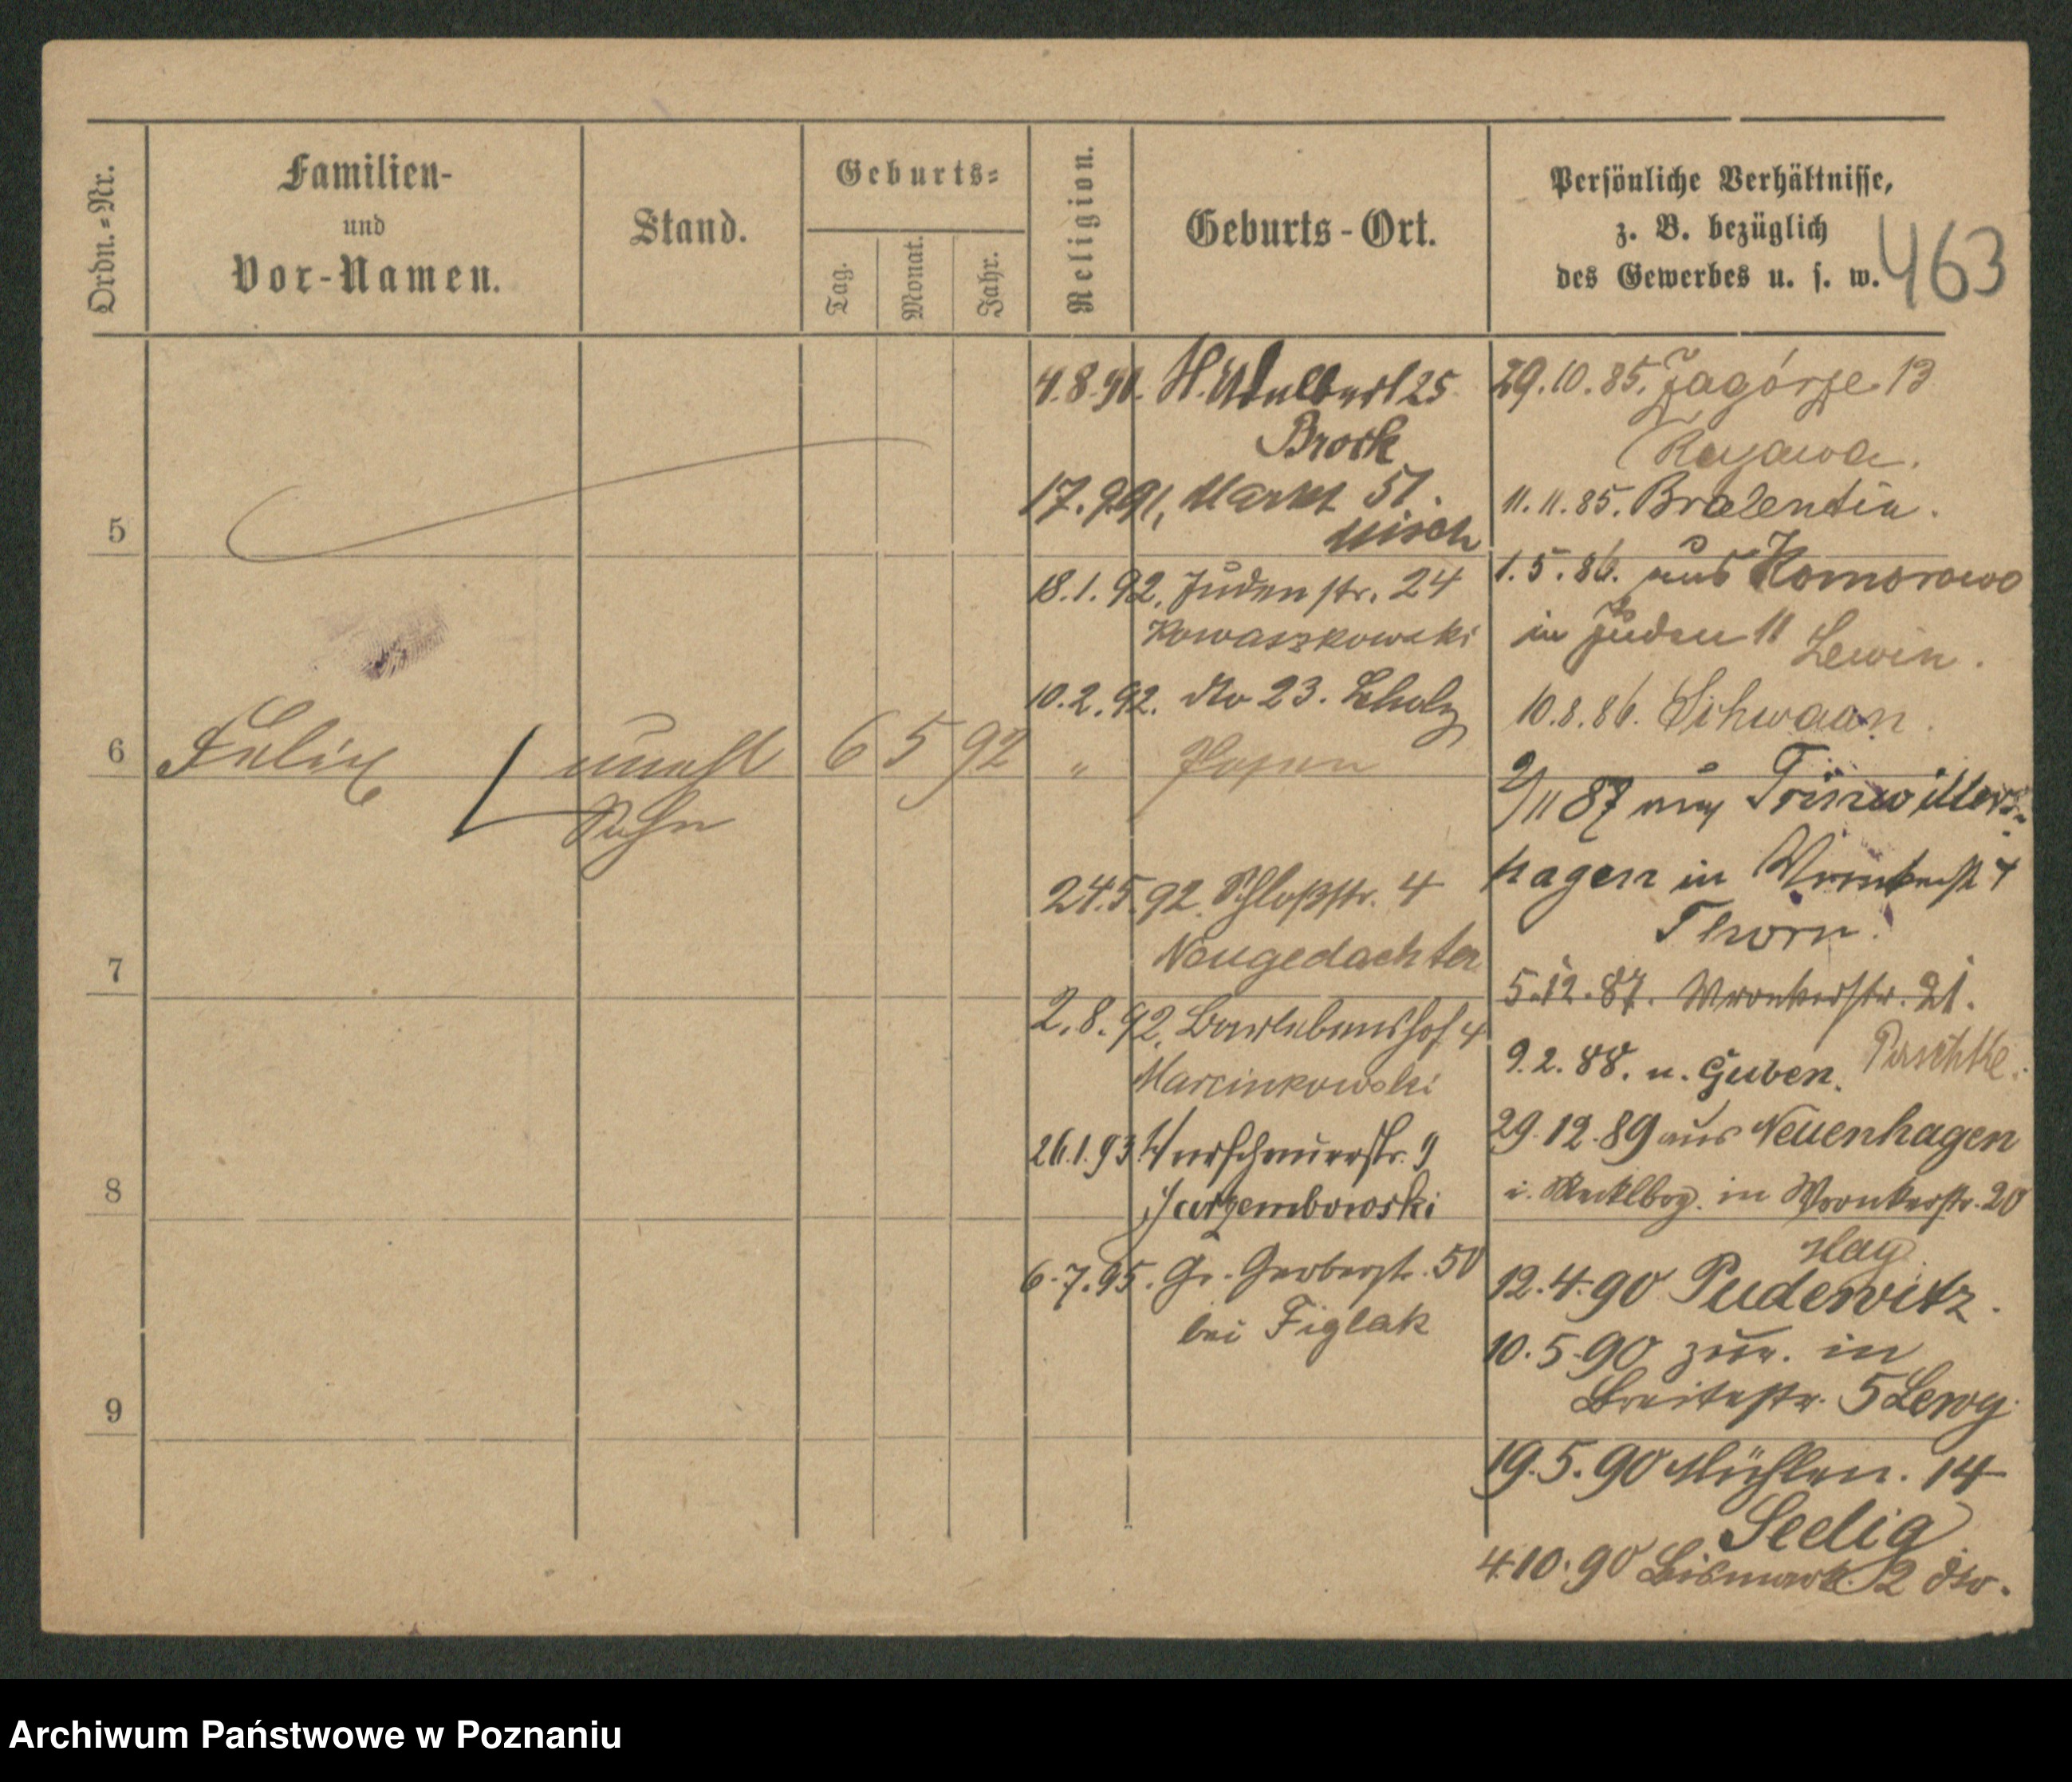 Ordn.-Nr.
Familien-
und
Vor-Namen.
Stand.
Geburts-
Tag.
Monat.
Jahr.
Religion.
Geburts-Ort.
Persönliche Verhältnisse,
z. B. bezüglich
des Gewerbes u. s. w.
463
5
6 Felix unehl 6 5 92 " Posen
Sohn
7
8
9
4.8.90. St. Adalbert 25
Brock
17.9.91, Markt 51.
Misch
18.1.92. Judenstr. 24
Kowaszkowski
10.2.92. dto 23. Scholz
24.5.92. Schloßstr. 4
Neugedachter
2.8.92. Barlebenshof 4
Marcinkowski
26.1.93
Jarzembowski
6.7.95. Gr. Gerberstr. 50
bei Figlak
29.10.85. Zagórze 13
11.11.85.
1.5.86. aus Komorowo
in Juden 11 Lewin.
10.8.86. Schwaan.
2/11 87
hagen in
Thorn.
5.12.87. Wronkerstr. 21.
9.2.88. n. Guben.
29.12.89 aus Neuenhagen
i. Mecklbrg. in Wronkerstr. 20
12.4.90 Pudewitz.
10.5.90 zur. in
Breitestr. 5
19.5.90 Mühlen. 14
Seelig
4.10.90 Bismark. 2 dto.
Archiwum Państwowe w Poznaniu